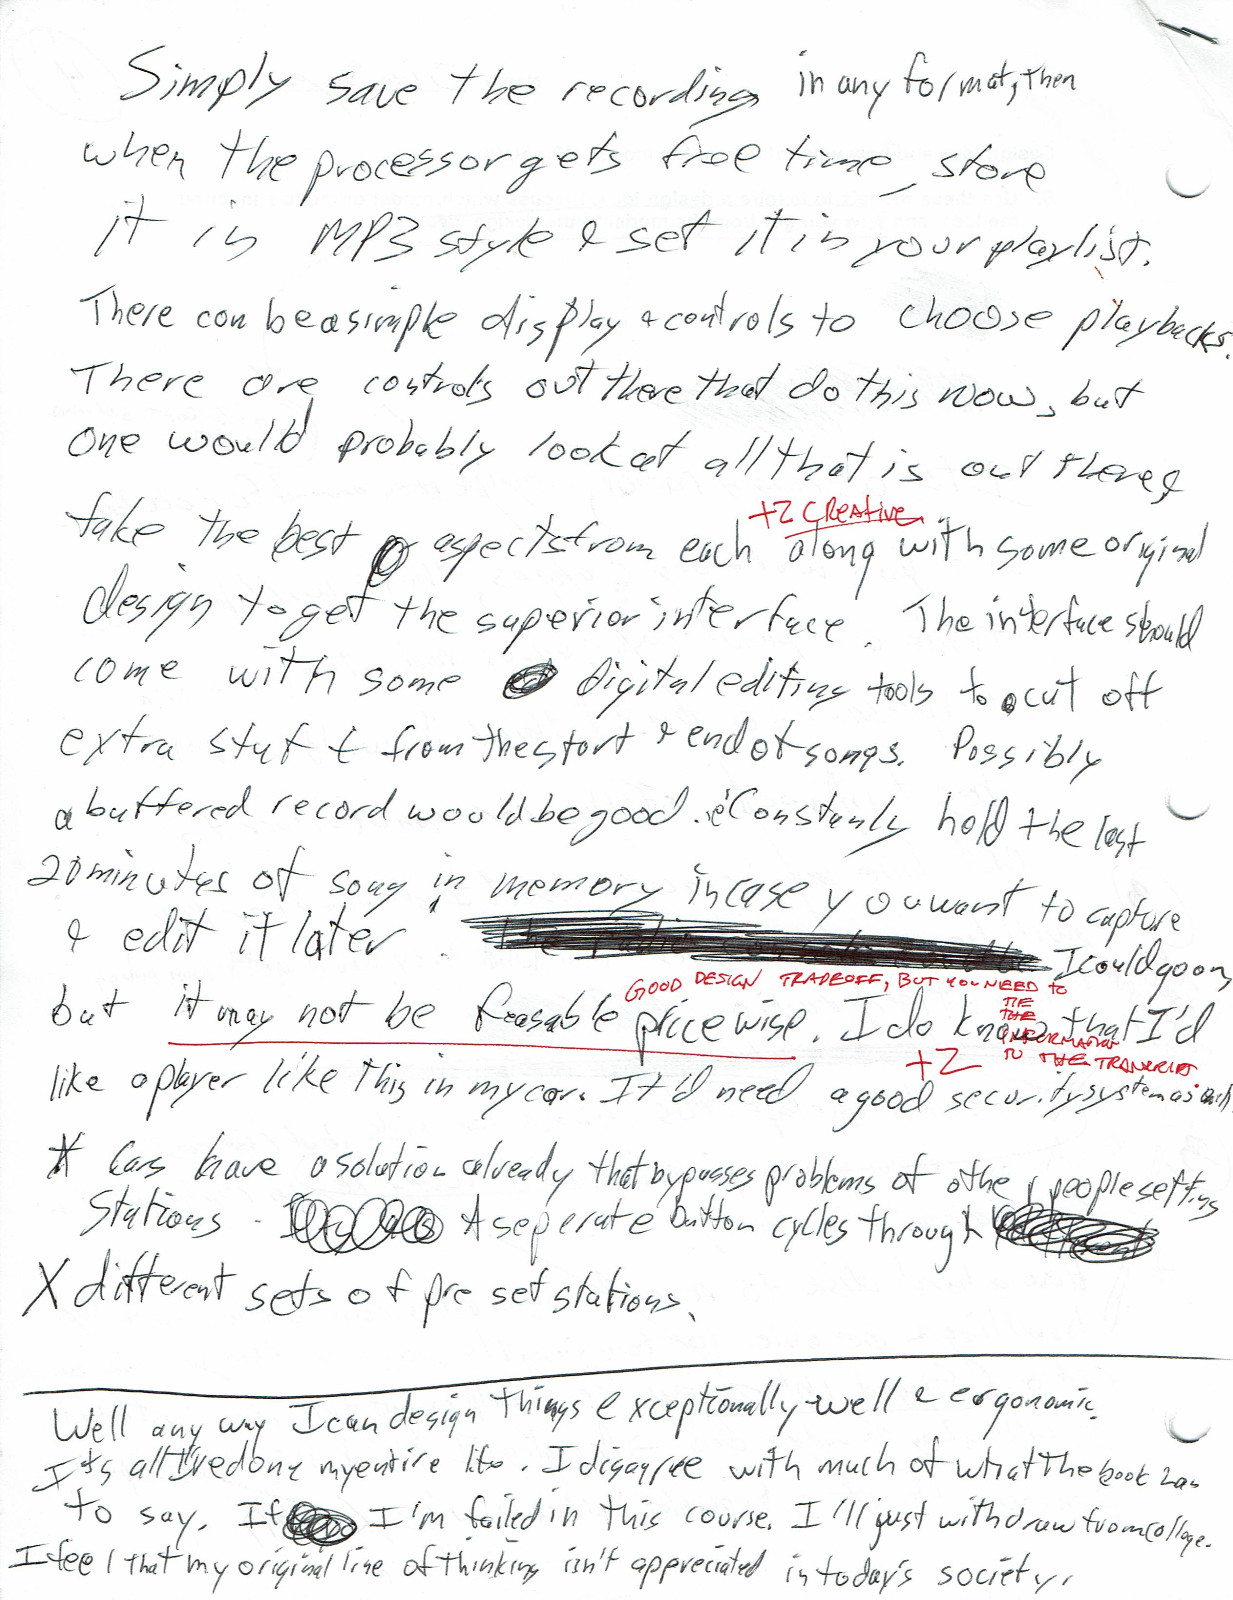 Simply save the recording in any format, then
when the processor gets free time, store
it in MP3 style & set it in your playlist.
There can be a simple display & controls to choose playbacks.
There are controls out there that do this now, but
one would probably look at all that is out there &
take the best aspects from each along with some original
+2 CREATIVE
design to get the superior interface. The interface should
come with some digital editing tools to cut off
extra stuff from the start & end of songs. Possibly
a buffered record would be good. Constanly hold the last
20 minutes of song in memory incase you want to capture
& edit it later. I could go on,
GOOD DESIGN TRADEOFF, BUT YOU NEED TO
TIE
THE
INFORMATION
TO THE TRANSCRIPT
+2
but it may not be feasable pricewise. I do know that I'd
like a player like this in my car. It'd need a good security system as
* Cars have a solution already that bypasses problems of other people setting
stations. A seperate button cycles through
X different sets of pre set stations.
Well any way I can design things exceptionally well & ergonomic.
It's all I've done my entire life. I disagree with much of what the book has
to say. If I'm failed in this course, I'll just withdraw from college.
I feel that my original line of thinking isn't appreciated in today's society.